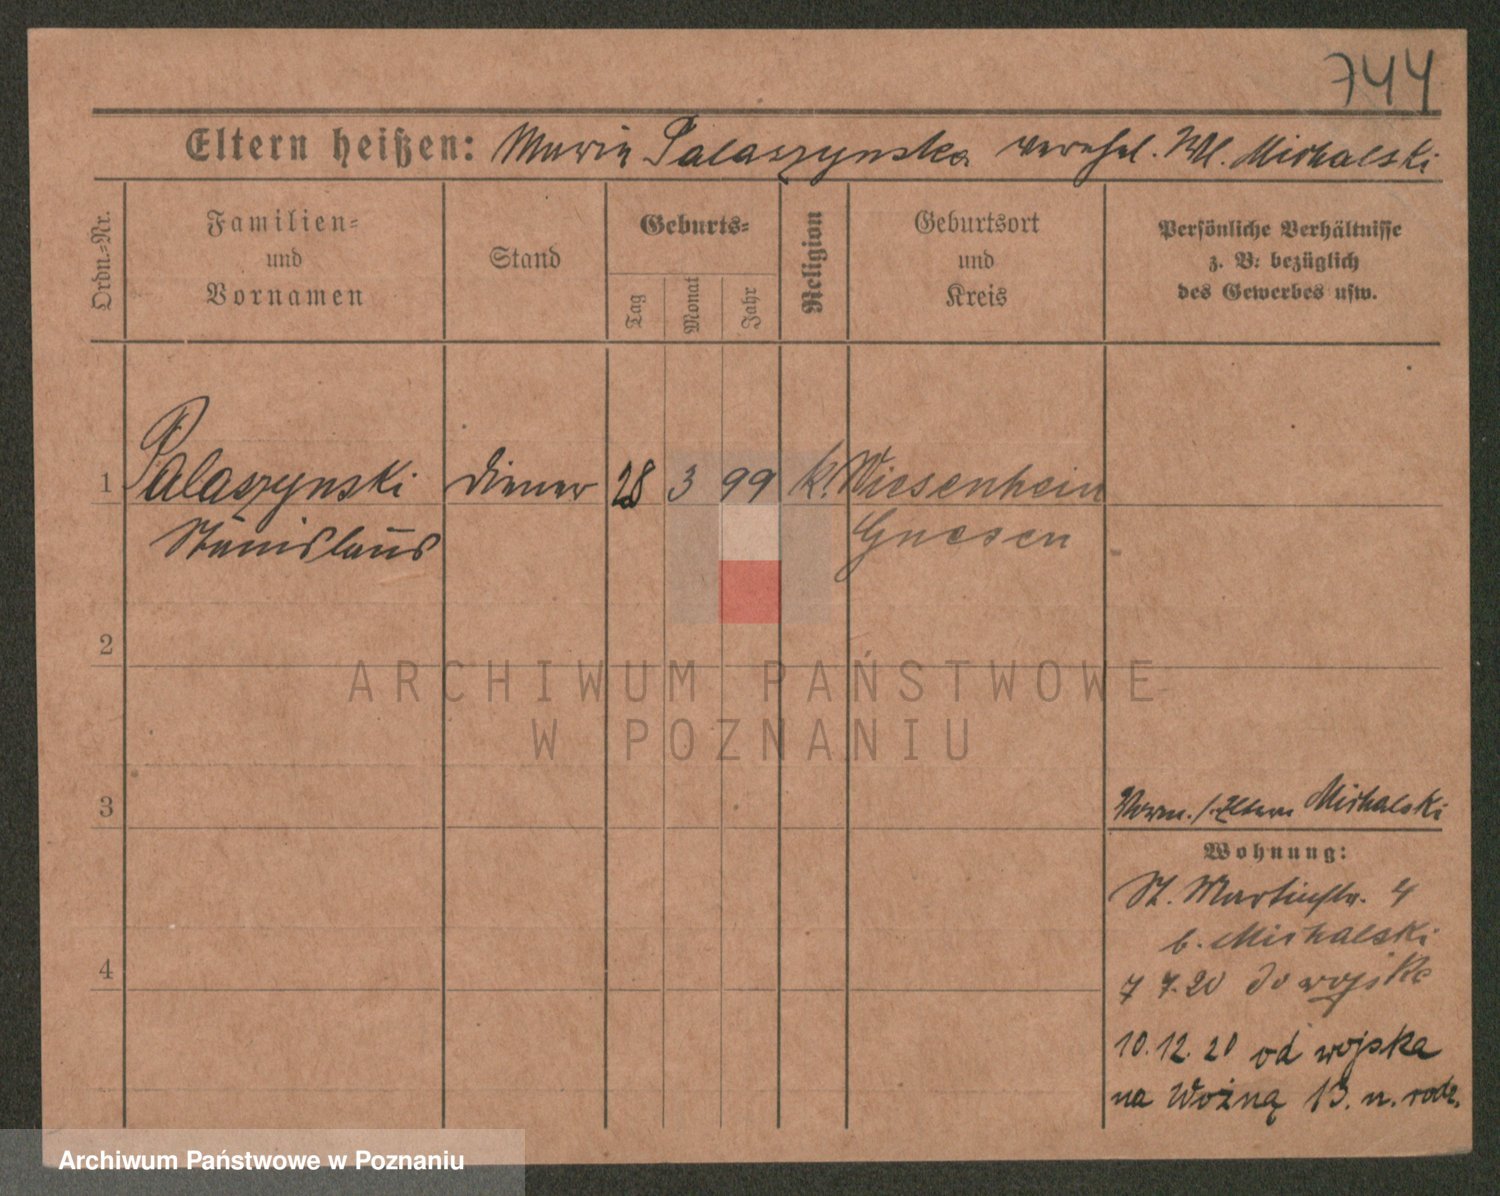 744
Eltern heißen: Maria Palaszynska verehel. Wl. Michalski
Ordn.-Nr.
Familien- und Vornamen
Stand
Geburts-
Tag
Monat
Jahr
Religion
Geburtsort und Kreis
Persönliche Verhältnisse z. B: bezüglich des Gewerbes usw.
1 Palaszynski Diener 28 3 99 k. Wiesenhein
Stanislaus Gnesen
2
3
4
Eltern Michalski
Wohnung:
St. Martinstr. 4
b. Michalski
7 7.20 do wojska
10.12.20 od wojska
na Wożną 13. n. rodz.
ARCHIWUM PAŃSTWOWE
W POZNANIU
Archiwum Państwowe w Poznaniu